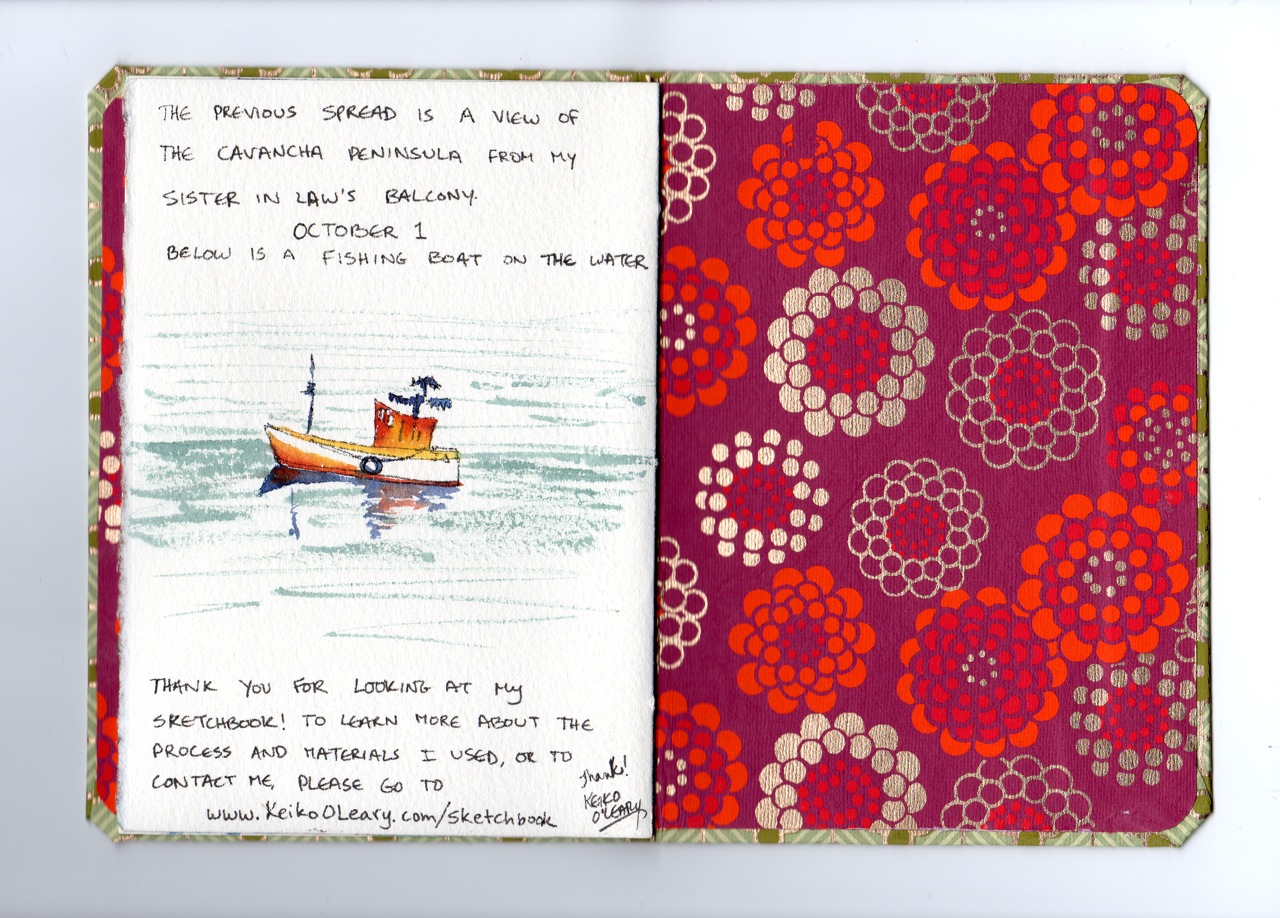 THE PREVIOUS SPREAD IS A VIEW OF
THE CAVANCHA PENINSULA FROM MY
SISTER IN LAW'S BALCONY.
OCTOBER 1
BELOW IS A FISHING BOAT ON THE WATER
THANK YOU FOR LOOKING AT MY
SKETCHBOOK! TO LEARN MORE ABOUT THE
PROCESS AND MATERIALS I USED, OR TO
CONTACT ME, PLEASE GO TO
www.KeikoOLeary.com/sketchbook
Thanks!
KEIKO
O'LEARY